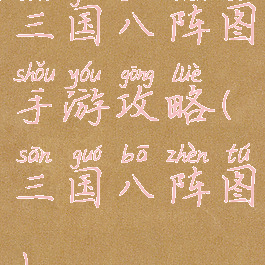 三国八阵图
shǒu yóu gōng lüè
手游攻略(
sān guó bā zhèn tú
三国八阵图
)